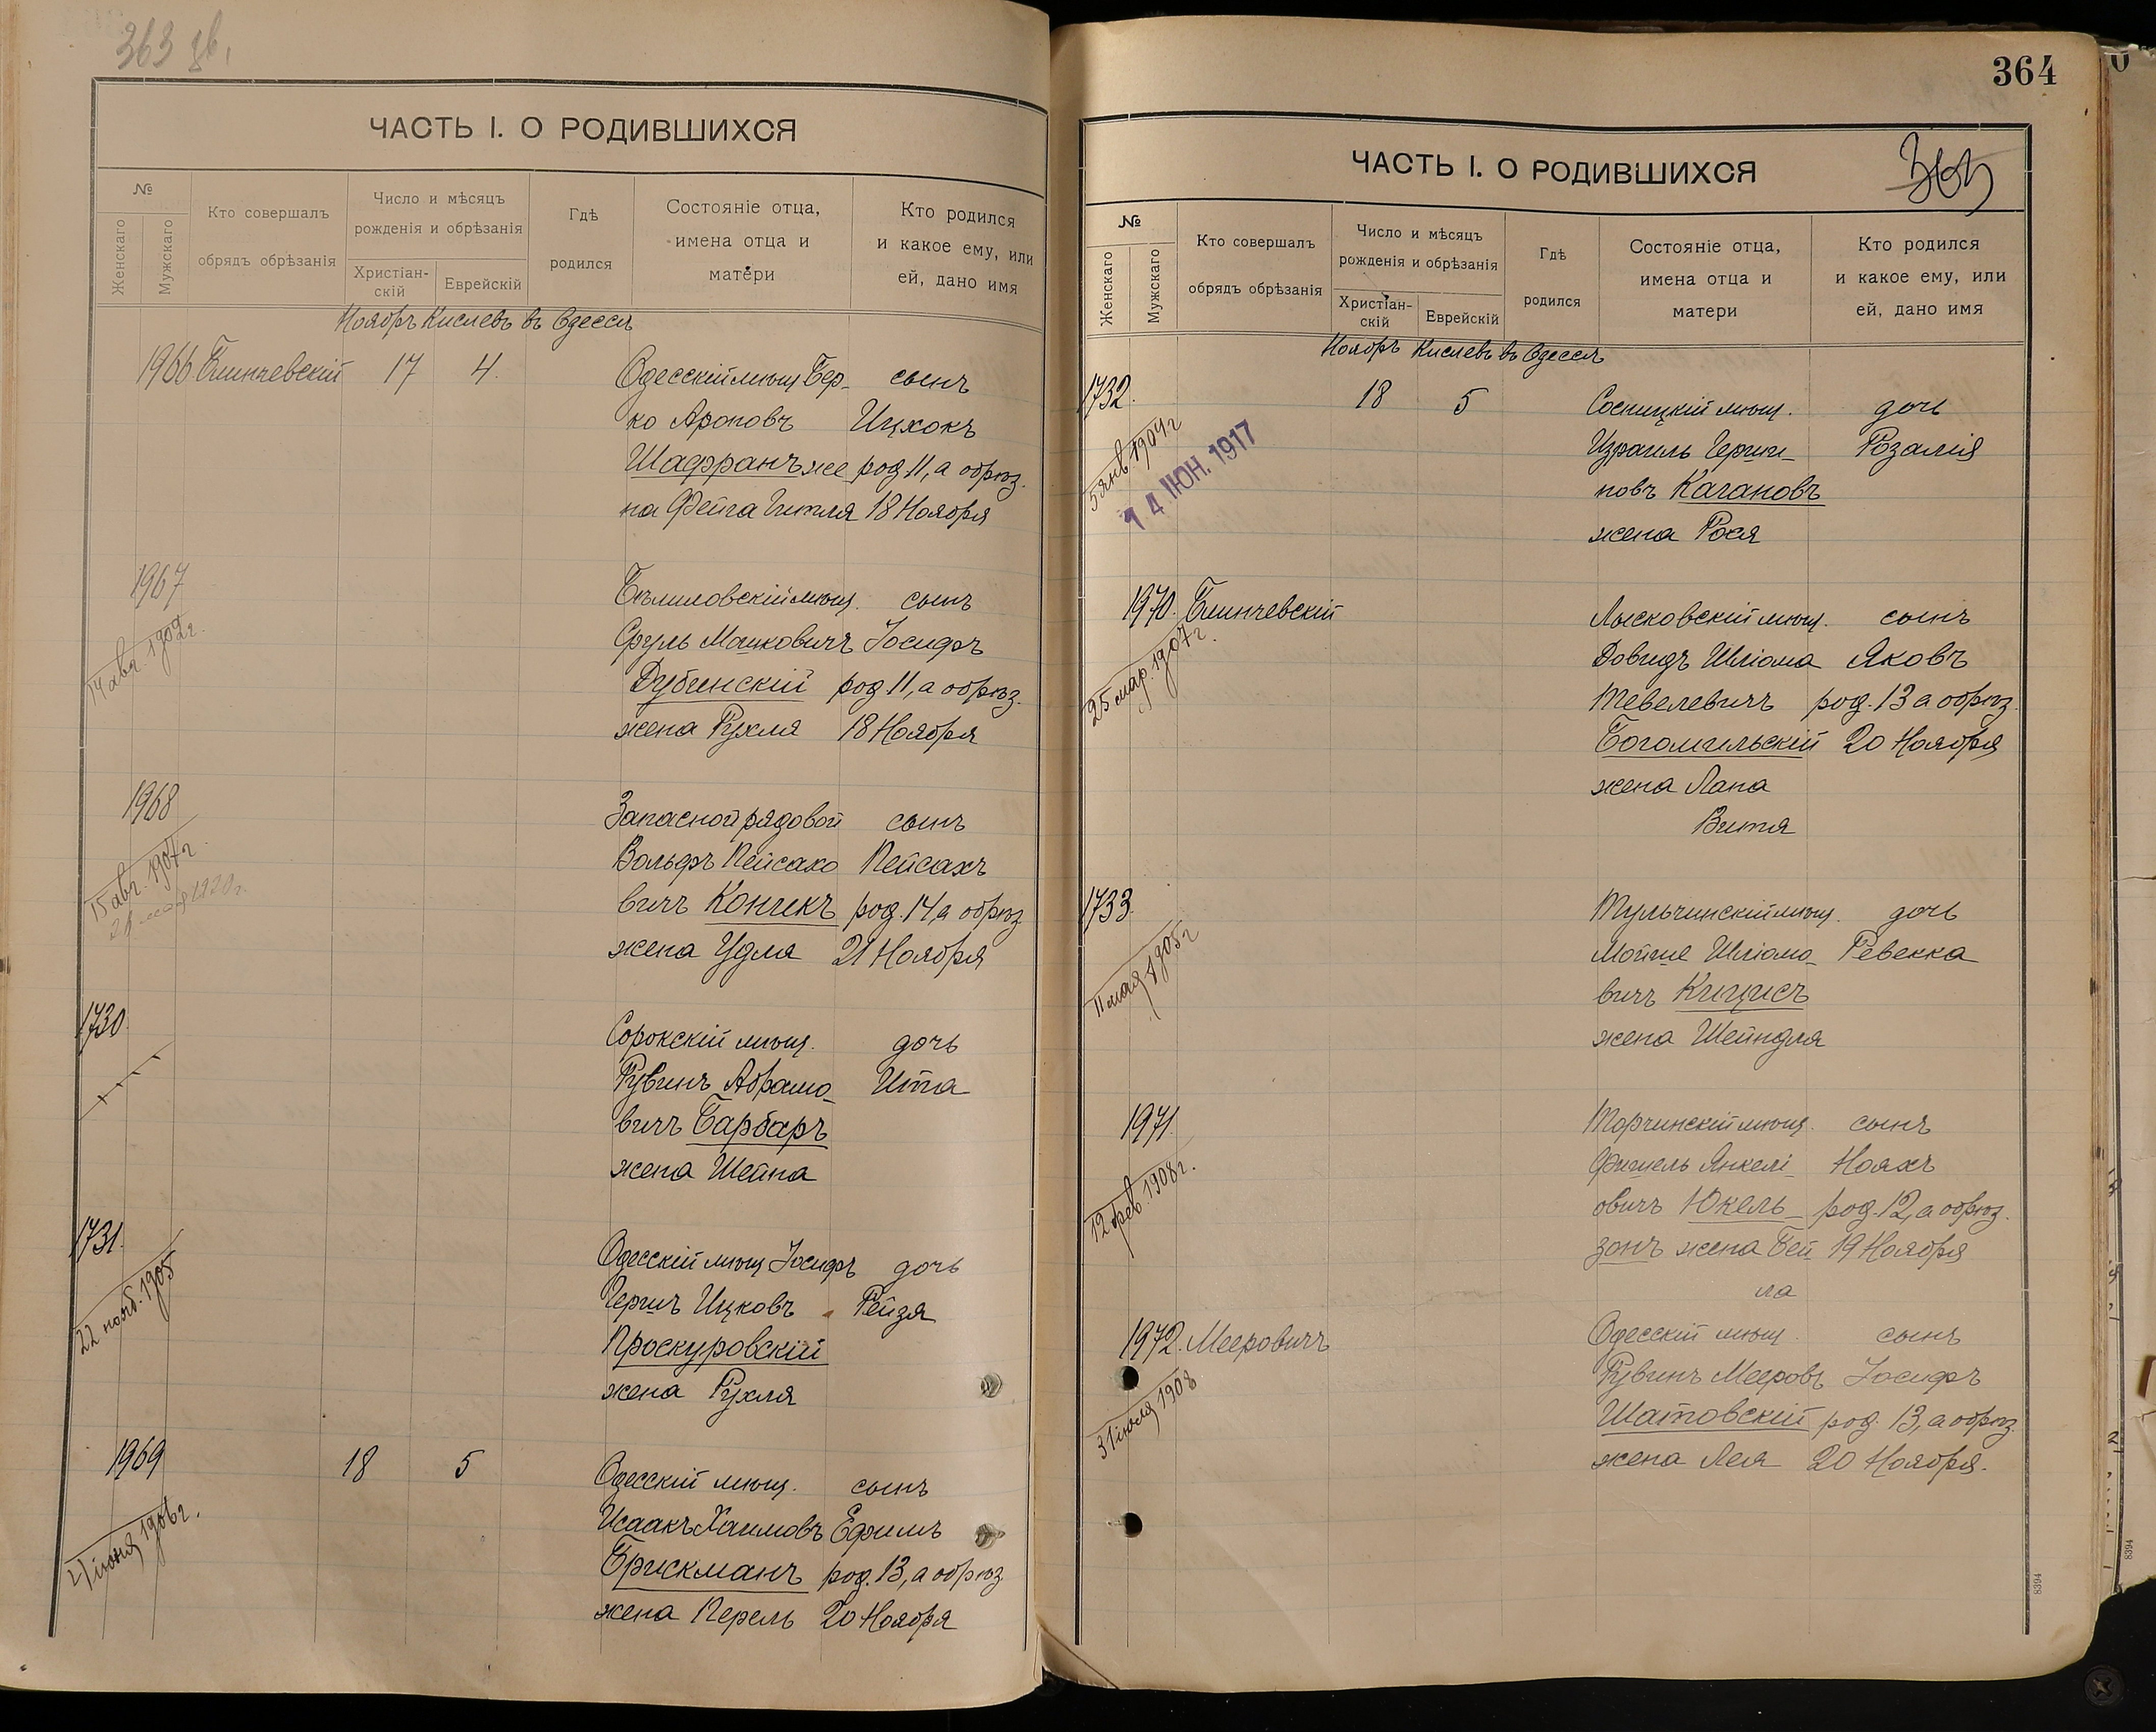 363 об.
ЧАСТЬ I. О РОДИВШИХСЯ
№
Женскаго
Мужскаго
Кто совершалъ
обрядъ обрѣзанія
Число и мѣсяцъ
рожденія и обрѣзанія
Христіан-
скій
Еврейскій
Гдѣ
родился
Состояніе отца,
имена отца и
матери
Кто родился
и какое ему, или
ей, дано имя
Ноябрь Кислевъ въ Одессѣ
1966 Блинчевскій 17 4. Одесскій мѣщ Бер- сынъ
ко Ароновъ Ицхокъ
Шафранъ же род 11, а обрѣз.
на Фейга Гитля 18 Ноября
1967 Бѣлиловскій мѣщ. сынъ
Сруль Мошковичъ Іосифъ
14 авг. 1909 г.
Дубинскій род 11, а обрѣз.
жена Рухля 18 Ноября
1968 Запасной рядовой сынъ
Вольфъ Пейсахо Пейсахъ
15 авг. 1907 г.
вичъ Кончикъ род. 14, а обрѣз
жена Удля 21 Ноября
1730. Сорокскій мѣщ. дочь
Рувинъ Абрамо- Ита
вичъ Барбаръ
жена Шейна
1731. Одесскій мѣщ Іосифъ дочь
22 нояб. 1905
Гершъ Ицковъ Рейзя
Проскуровскій
жена Рухля
1969 18 5 Одесскій мѣщ. сынъ
Исаакъ Хаимовъ Ефимъ
4 іюня 1906 г.
Брискманъ род. 13, а обрѣз
жена Перель 20 Ноября
364
365
ЧАСТЬ I. О РОДИВШИХСЯ
№
Женскаго
Мужскаго
Кто совершалъ
обрядъ обрѣзанія
Число и мѣсяцъ
рожденія и обрѣзанія
Христіан-
скій
Еврейскій
Гдѣ
родился
Состояніе отца,
имена отца и
матери
Кто родился
и какое ему, или
ей, дано имя
Ноябрь Кислевъ въ Одессѣ
1732. 18 5 Сосницкій мѣщ. дочь
5 янв. 1904 г
14 ІЮН. 1917
Израиль Герши- Розалія
новъ Кагановъ
жена Рося
1970. Блинчевскій Лысковскій мѣщ. сынъ
25 мар. 1907 г.
Довидъ Шліома Яковъ
Тевелевичъ род. 13 а обрѣз.
Богомильскій 20 Ноября
жена Лана
Витя
1733. Тульчинскій мѣщ. дочь
11 мая 1905 г
Мойше Шліомо- Ревекка
вичъ Кицисъ
жена Шейндля
1971. Торчинскій мѣщ. сынъ
12 фев. 1908 г.
Фишель Янкелі- Ноахъ
овичъ Юкель- род. 12, а обрѣз.
зонъ жена Бей 19 Ноября
ла
1972. Мееровичъ Одесскій мѣщ. сынъ
31 іюля 1908
Рувинъ Мееровъ Іосифъ
Шатовскій род. 13, а обрѣз.
жена Лея 20 Ноября.
8394
8394